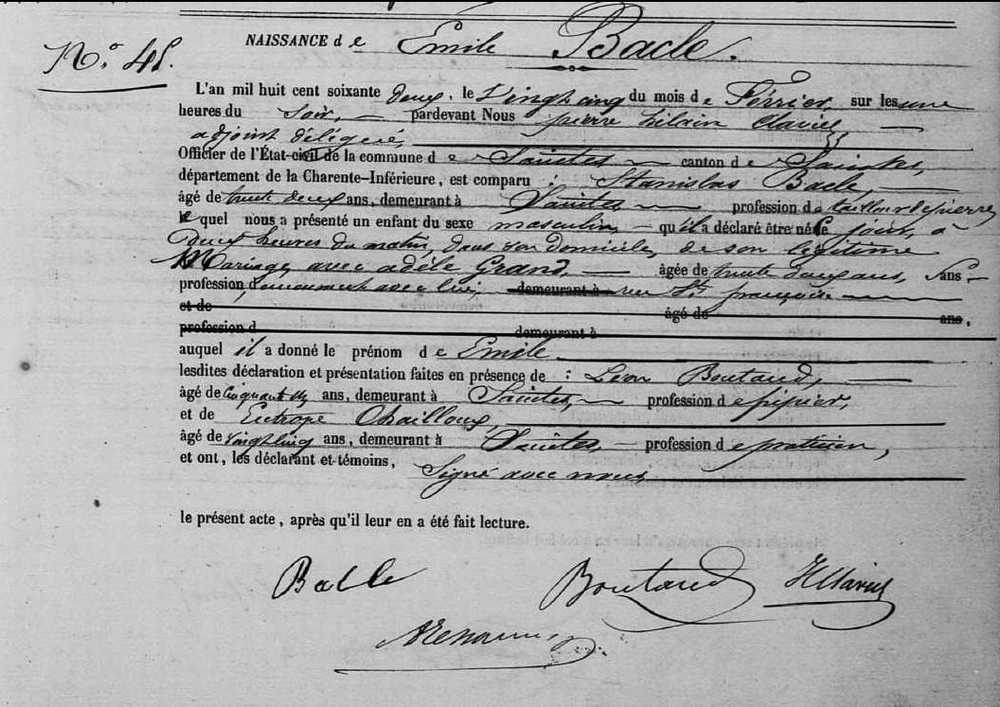 N.° 48.
NAISSANCE de Emile Bacle.
L'an mil huit cent soixante deux, le Vingt cinq du mois de Février, sur les une
heures du soir, pardevant Nous pierre hilaire
adjoint délégué,
Officier de l'État-civil de la commune de Saintes canton de Saintes,
département de la Charente-Inférieure, est comparu : Stanislas Bacle,
âgé de trente deux ans, demeurant à Saintes profession de tailleur de pierre
lequel nous a présenté un enfant du sexe masculin, qu'il a déclaré être né ce jour, à
deux heures du matin, dans son domicile, de son légitime
Mariage avec adèle Grand, âgée de trente ans, sans
profession, avec lui, demeurant à rue St. françois
et de âgé de ans,
profession d demeurant à
auquel il a donné le prénom de Emile
lesdites déclaration et présentation faites en présence de : Léon Boutaud,
âgé de cinquante ans, demeurant à Saintes, profession d
et de Eutrope Chailloux,
âgé de vingt cinq ans, demeurant à Saintes, profession de praticien,
et ont, les déclarant et témoins,
Signé avec nous
le présent acte, après qu'il leur en a été fait lecture.
Bacle Boutaud